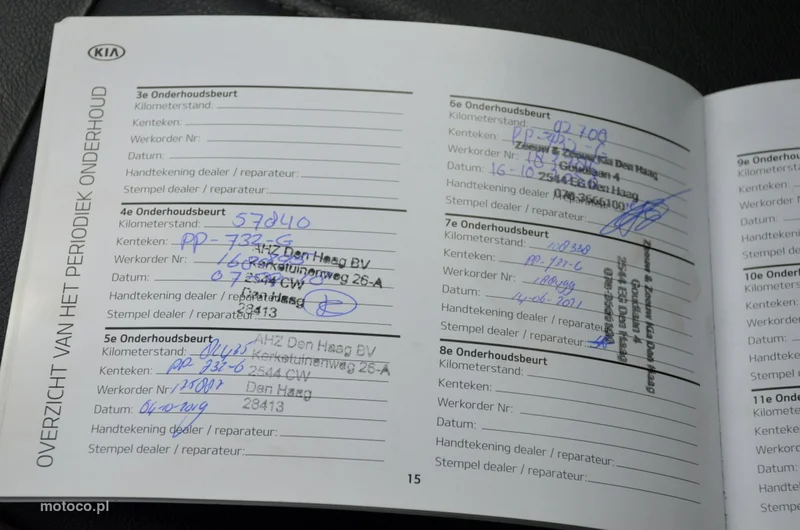 KIA
OVERZICHT VAN HET PERIODIEK ONDERHOUD
3e Onderhoudsbeurt
Kilometerstand:
Kenteken:
Werkorder Nr:
Datum:
Handtekening dealer / reparateur:
Stempel dealer / reparateur:
4e Onderhoudsbeurt
Kilometerstand: 57840
Kenteken: PP-732-G
Werkorder Nr:
Datum:
Handtekening dealer / reparateur:
Stempel dealer / reparateur:
AHZ Den Haag BV
Kerketuinenweg 26-A
2544 CW
Den Haag
28413
5e Onderhoudsbeurt
Kilometerstand:
Kenteken: PP-732-G
Werkorder Nr:
Datum: 04-10-2019
Handtekening dealer / reparateur:
Stempel dealer / reparateur:
AHZ Den Haag BV
Kerketuinenweg 26-A
2544 CW
Den Haag
28413
6e Onderhoudsbeurt
Kilometerstand: 92700
Kenteken:
Werkorder Nr:
Datum: 16-10
Handtekening dealer / reparateur:
Stempel dealer / reparateur:
Zeeuw & Zeeuw Kia Den Haag
Goudlaan 4
2544 EG Den Haag
070 3666100
7e Onderhoudsbeurt
Kilometerstand: 108338
Kenteken:
Werkorder Nr:
Datum: 14-06-2021
Handtekening dealer / reparateur:
Stempel dealer / reparateur:
Zeeuw & Zeeuw Kia Den Haag
Goudlaan 4
2544 EG Den Haag
8e Onderhoudsbeurt
Kilometerstand:
Kenteken:
Werkorder Nr:
Datum:
Handtekening dealer / reparateur:
Stempel dealer / reparateur:
15
9e Onderhou
Kilometersta
Kenteken:
Werkorder
Datum:
Handtekeni
Stempel de
10e Onder
Kilometer
Kenteken
Werkord
Datum:
Handtek
Stempel
11e On
Kilome
Kenteke
Werkor
Datum:
Handte
Stemp
motoco.pl